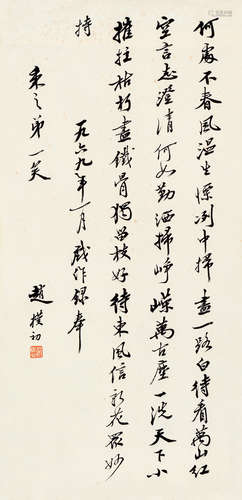 何處不春風溫生凜冽中掃盡一路白待看萬山紅
空言志澄清何如勤洒掃崢嶸萬古塵一洗天下小
摧拉枯朽盡鐵骨獨留枝好待東風信新花眾妙
持
一九六九年一月戲作録奉
之弟一笑
趙樸初